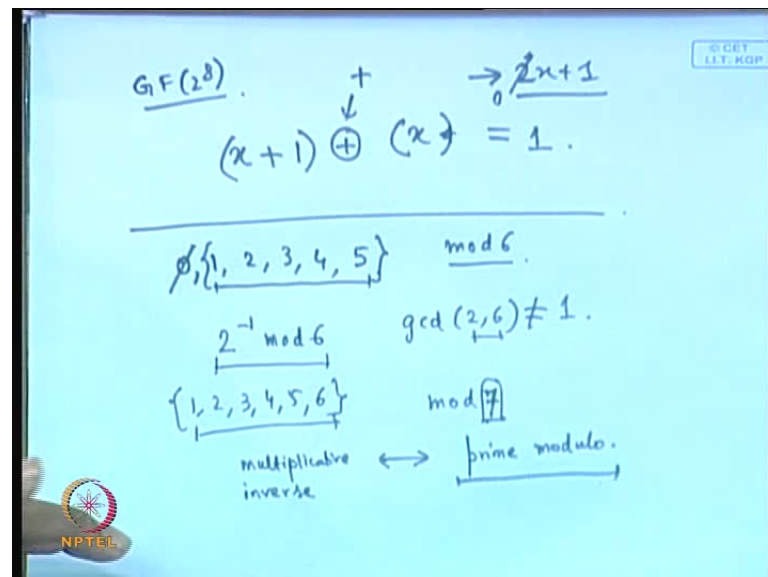 © CET
I.I.T. KGP
GF(2⁸). + → 2x+1
↓ 0
(x+1) ⊕ (x) = 1.
0,{1, 2, 3, 4, 5} mod 6.
2⁻¹ mod 6 gcd (2,6) ≠ 1.
{1, 2, 3, 4, 5, 6} mod 7
multiplicative ↔ prime modulo.
inverse
NPTEL